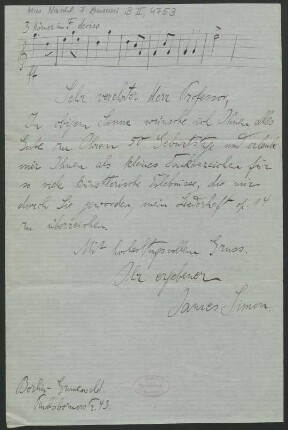 Mus. Nachl. F. Busoni B II, 4753
3 Hörner in F
ff
Sehr verehrter Herr Professor,
In obigem Sinne wünsche ich Ihnen alles
Gute zu Ihrem 50. Geburtstage und erlaube
mir Ihnen als kleines Dankeszeichen für
so viele künstlerische Erlebnisse, die mir
durch Sie geworden, mein Liederheft op. 14
zu überreichen.
Mit hochachtungsvollem Gruss
Ihr ergebener
James Simon.
Berlin-Grunewald.